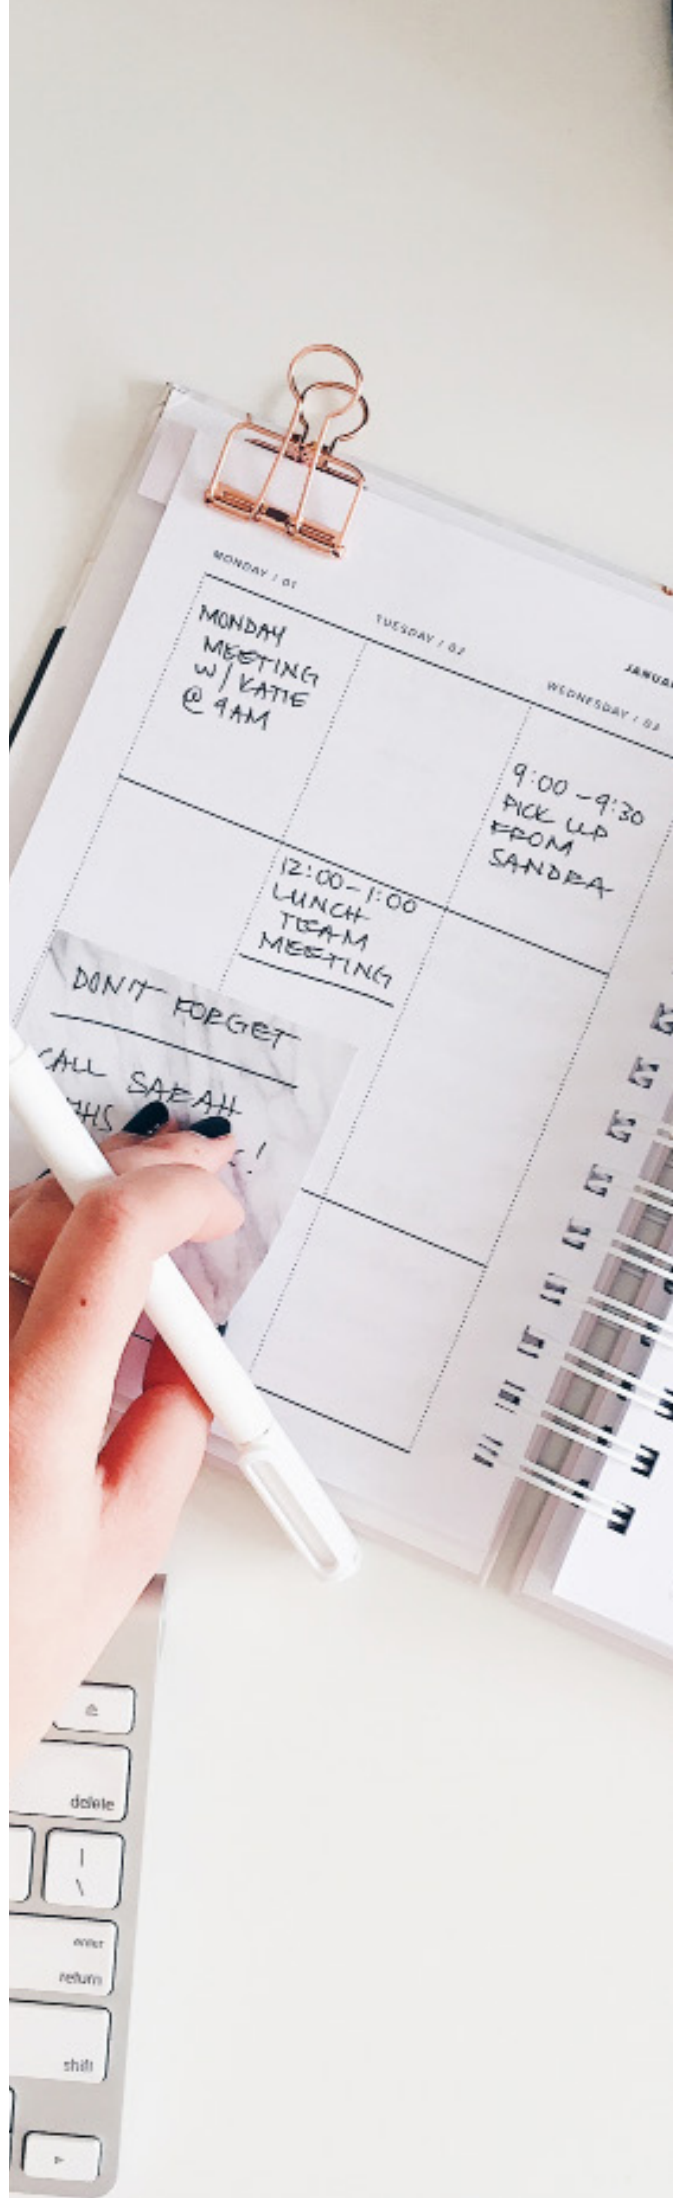 MONDAY / 01
TUESDAY / 02
WEDNESDAY / 03
MONDAY
MEETING
W/ KATIE
@ 9AM
9:00 - 9:30
PICK UP
FROM
SANDRA
12:00 - 1:00
LUNCH
TEAM
MEETING
DON'T FORGET
CALL SARAH
!
delete
|
\
enter
return
shift